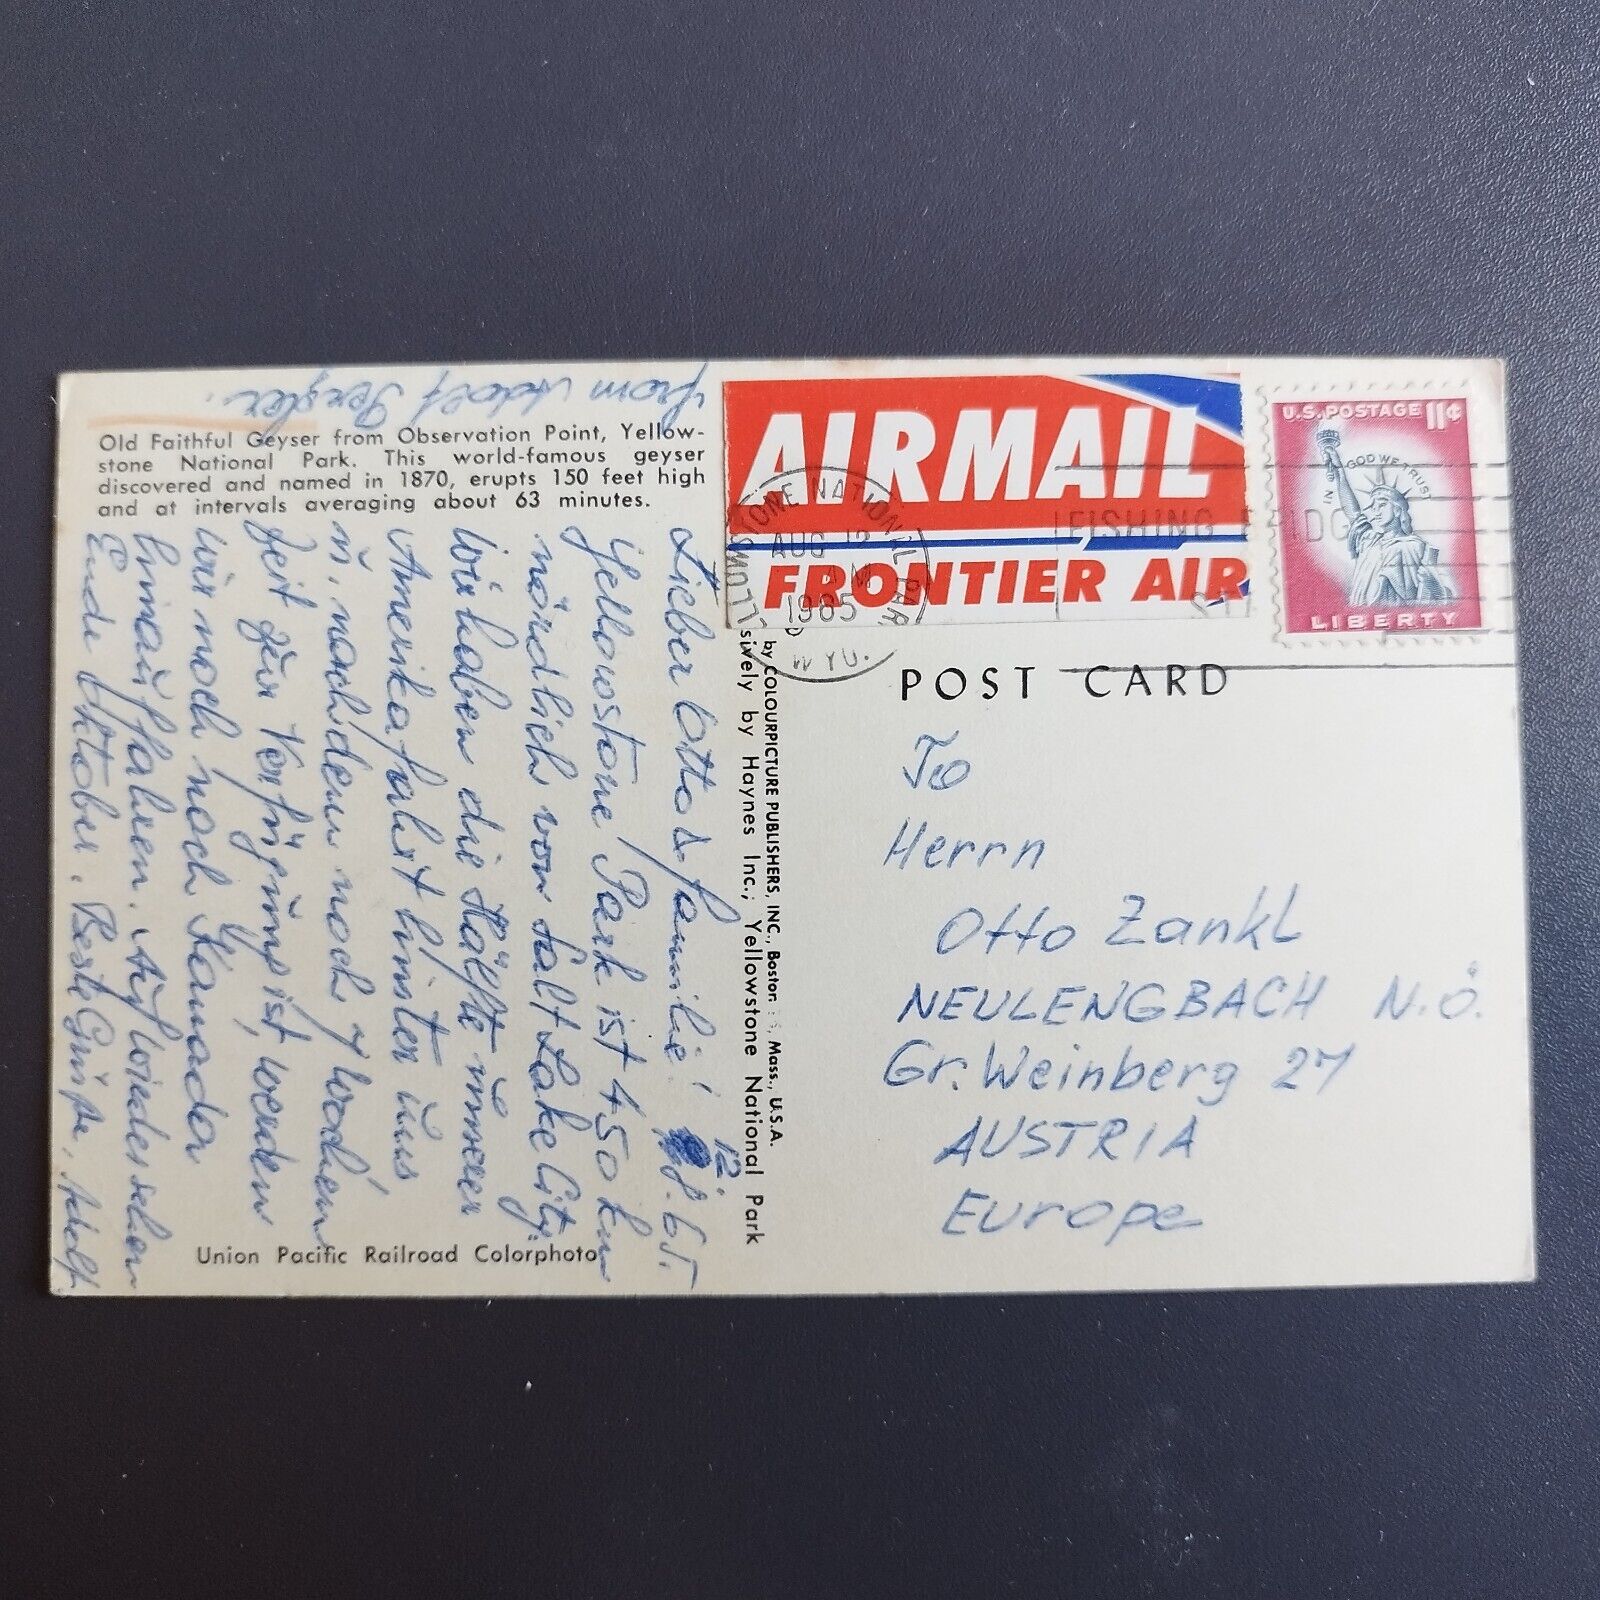 from Adolf
Old Faithful Geyser from Observation Point, Yellow-
stone National Park. This world-famous geyser
discovered and named in 1870, erupts 150 feet high
and at intervals averaging about 63 minutes.
Lieber Otto & Familie! 12.8.65.
Yellowstone Park ist 450 km
nördlich von Salt Lake City.
Wir haben die Hälfte unserer
Amerikafahrt hinter uns
u. nachdem noch 7 Wochen
Zeit zur Verfügung ist, werden
wir noch nach Kanada
hinauffahren. Auf Wiedersehen
Ende Oktober. Beste Grüße, Adolf
Union Pacific Railroad Colorphoto
by COLOURPICTURE PUBLISHERS, INC., Boston, Mass., U.S.A.
sively by Haynes Inc.; Yellowstone National Park
AIRMAIL
FRONTIER AIR
YELLOWSTONE NATIONAL PARK
AUG 12
AM
1965
WYO.
FISHING BRIDGE
STA
U.S. POSTAGE 11¢
IN GOD WE TRUST
LIBERTY
POST CARD
To
Herrn
Otto Zankl
NEULENGBACH N.Ö.
Gr. Weinberg 27
AUSTRIA
Europe